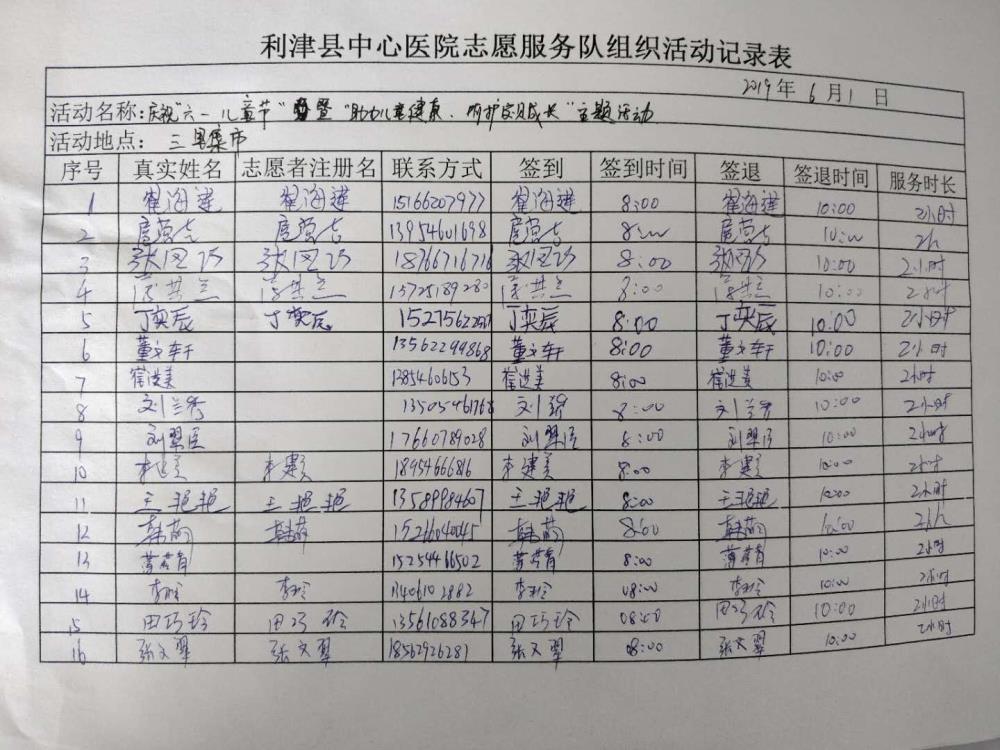 利津县中心医院志愿服务队组织活动记录表
2019年 6月1日
活动名称:庆祝"六一儿童节"暨"助力儿童健康、呵护成长"主题活动
活动地点: 三里集市
序号 真实姓名 志愿者注册名 联系方式 签到 签到时间 签退 签退时间 服务时长
1 崔海进 崔海进 15166207977 崔海进 8:00 崔海进 10:00 2小时
2 13954601698 8:00 10:00 2h
3 张国巧 张国巧 18766716716 张国巧 8:00 张国巧 10:00 2小时
4 13725189280 8:00 10:00 2小时
5 丁奕辰 丁奕辰 丁奕辰 8:00 丁奕辰 10:00 2小时
6 董文轩 13562299868 董文轩 8:00 董文轩 10:00 2小时
7 崔进美 13854606153 崔进美 8:00 崔进美 10:00 2小时
8 刘兰秀 13505461768 刘兰秀 8:00 刘兰秀 10:00 2小时
9 17660789028 8:00 10:00 2小时
10 18954666816 8:00 10:00 2小时
11 王艳艳 王艳艳 13589984607 王艳艳 8:00 王艳艳 10:00 2小时
12 韩萌 韩萌 15266040045 韩萌 8:00 韩萌 10:00 2h
13 15254466502 8:00 10:00 2小时
14 李玲 李玲 13406102882 李玲 08:00 李玲 10:00 2小时
15 田巧玲 田巧玲 13561088347 田巧玲 08:00 田巧玲 10:00 2小时
16 张文翠 张文翠 18562926281 张文翠 08:00 张文翠 10:00 2小时